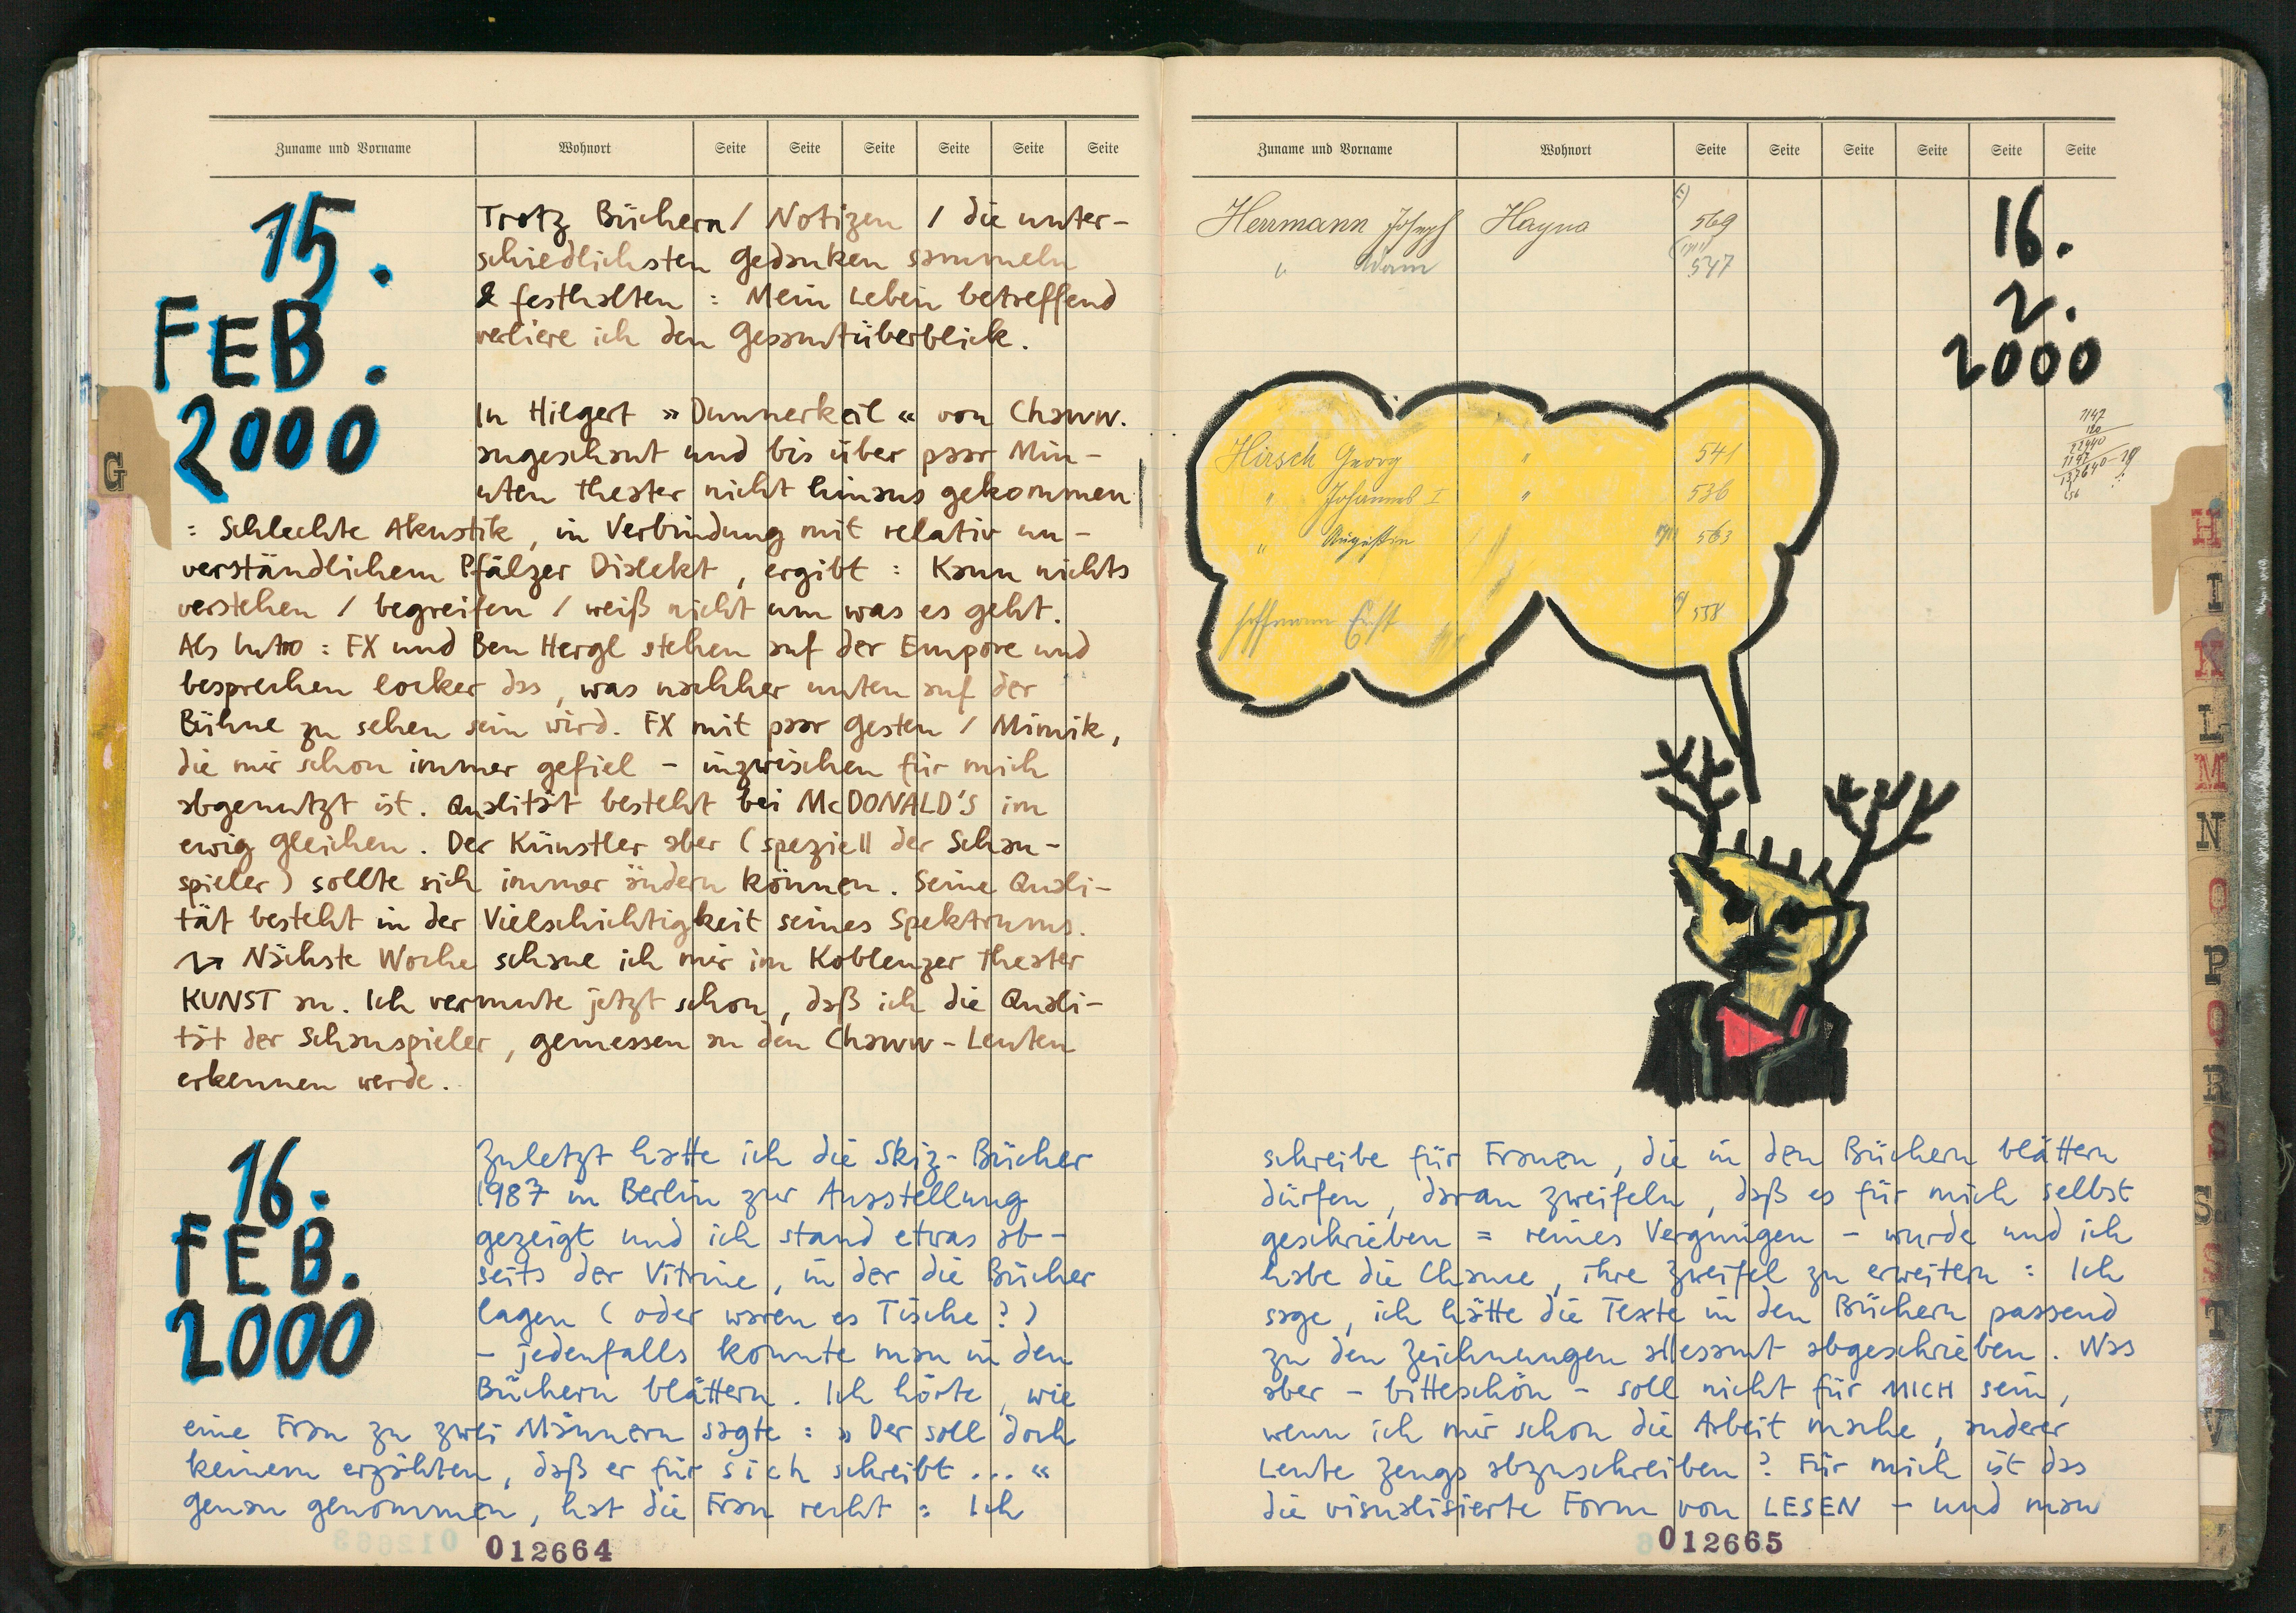 Zuname und Vorname Wohnort Seite Seite Seite Seite Seite Seite
15.
FEB.
2000
Trotz Büchern / Notizen / die unter-
schiedlichsten Gedanken sammeln
& festhalten : Mein Leben betreffend
verliere ich den Gesamtüberblick.
In Hilgert » Dunnerkeil « von Chaww.
angeschaut und bis über paar Min-
uten Theater nicht hinaus gekommen
: Schlechte Akustik, in Verbindung mit relativ un-
verständlichem Pfälzer Dialekt, ergibt : Kann nichts
verstehen / begreifen / weiß nicht um was es geht.
Als Intro : FX und Ben Hergl stehen auf der Empore und
besprechen locker das, was nachher unten auf der
Bühne zu sehen sein wird. FX mit paar Gesten / Mimik,
die mir schon immer gefiel - inzwischen für mich
abgenutzt ist. Qualität besteht bei McDONALD'S im
ewig gleichen. Der Künstler aber ( speziell der Schau-
spieler ) sollte sich immer ändern können. Seine Quali-
tät besteht in der Vielschichtigkeit seines Spektrums.
Nächste Woche schaue ich mir im Koblenzer Theater
KUNST an. Ich vermute jetzt schon, daß ich die Quali-
tät der Schauspieler, gemessen an den Chaww-Leuten
erkennen werde.
16.
FEB.
2000
Zuletzt hatte ich die Skiz-Bücher
1987 in Berlin zur Ausstellung
gezeigt und ich stand etwas ab-
seits der Vitrine, in der die Bücher
lagen ( oder waren es Tische ? )
- jedenfalls konnte man in den
Büchern blättern. Ich hörte, wie
eine Frau zu zwei Männern sagte : » Der soll doch
keinem erzählen, daß er für sich schreibt ... «
Genau genommen, hat die Frau recht : Ich
012664
G
Zuname und Vorname Wohnort Seite Seite Seite Seite Seite Seite
Herrmann Joseph Hayna 569
" Adam 547
16.
2.
2000
Hirsch Georg " 541
" Johannes I " 536
" Augustin 563
Hoffmann 558
schreibe für Frauen, die in den Büchern blättern
dürfen, daran zweifeln, daß es für mich selbst
geschrieben = reines Vergnügen - wurde und ich
habe die Chance, ihre Zweifel zu erweitern : Ich
sage, ich hätte die Texte in den Büchern passend
zu den Zeichnungen allesamt abgeschrieben. Was
aber - bitteschön - soll nicht für MICH sein,
wenn ich mir schon die Arbeit mache, anderer
Leute Zeugs abzuschreiben ? Für mich ist das
die visualisierte Form von LESEN - und man
012665
H
I
K
L
M
N
O
P
Q
R
S
Sch
St
T
V